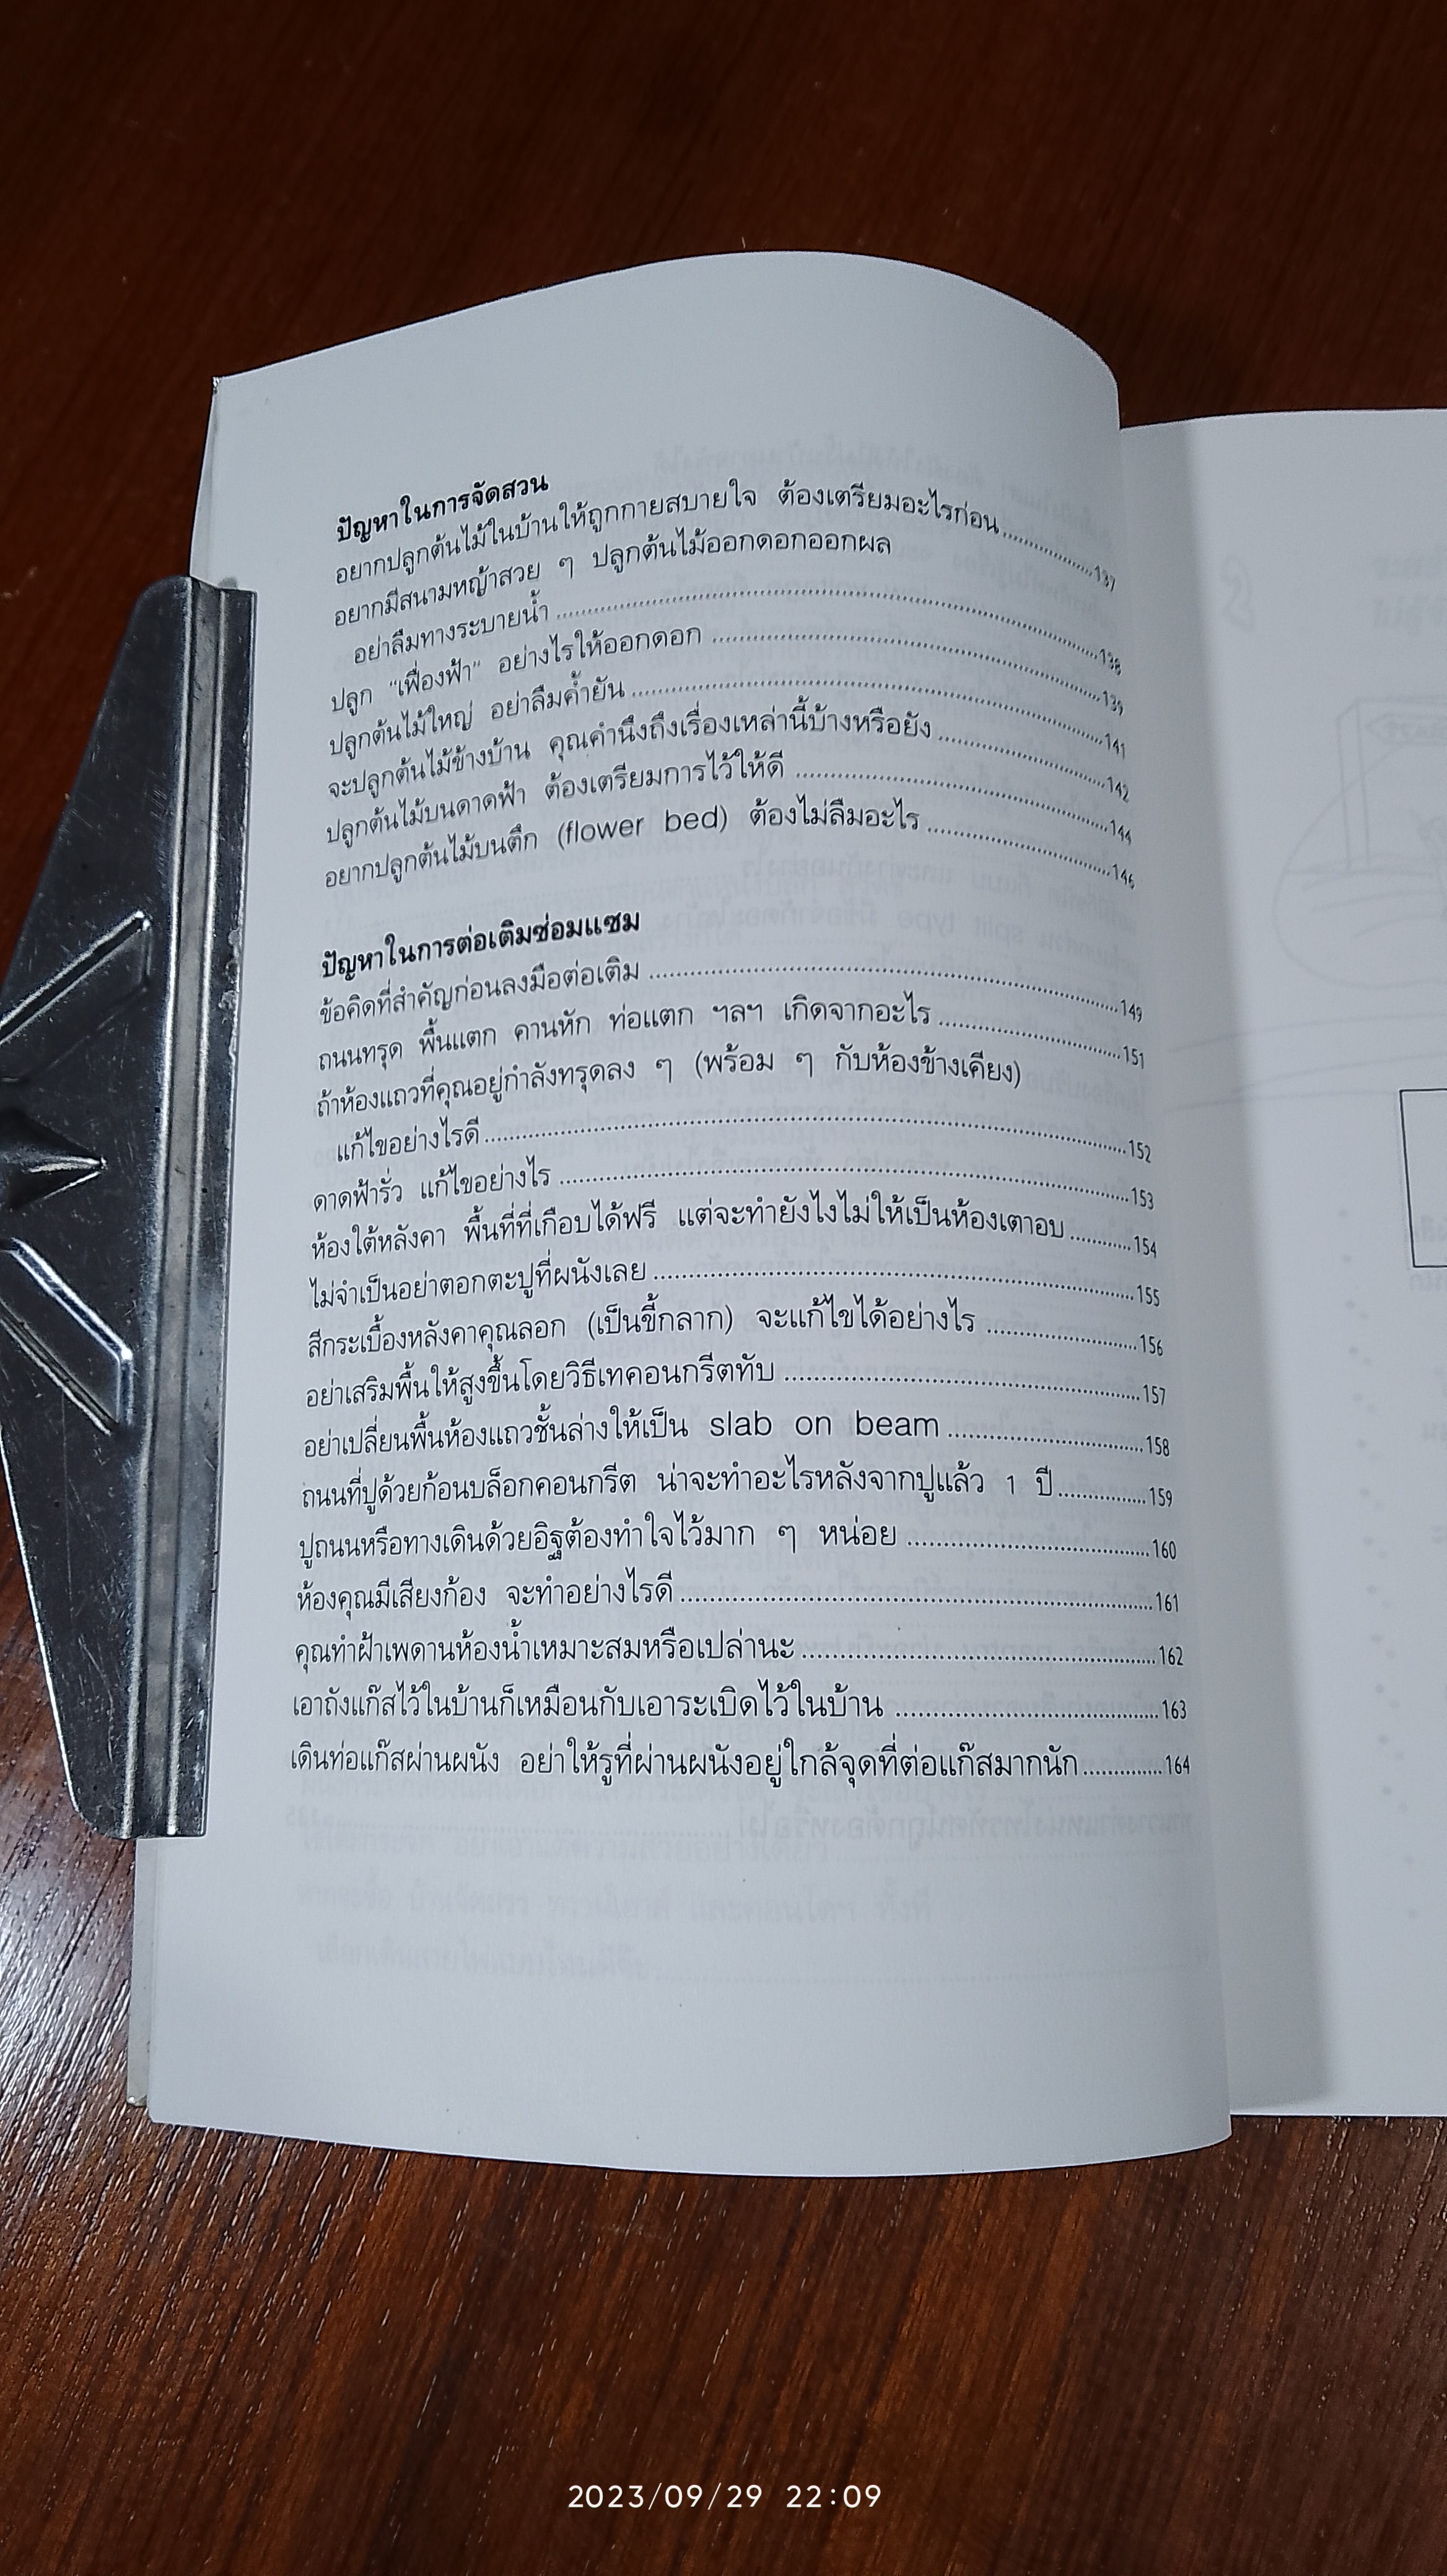 ปัญหาในการจัดสวน
อยากปลูกต้นไม้ในบ้านให้ถูกกายสบายใจ ต้องเตรียมอะไรก่อน....................137
อยากมีสนามหญ้าสวย ๆ ปลูกต้นไม้ออกดอกออกผล
อย่าลืมทางระบายน้ำ....................138
ปลูก "เฟื่องฟ้า" อย่างไรให้ออกดอก....................139
ปลูกต้นไม้ใหญ่ อย่าลืมค้ำยัน....................141
จะปลูกต้นไม้ข้างบ้าน คุณคำนึงถึงเรื่องเหล่านี้บ้างหรือยัง....................142
ปลูกต้นไม้บนดาดฟ้า ต้องเตรียมการไว้ให้ดี....................144
อยากปลูกต้นไม้บนตึก (flower bed) ต้องไม่ลืมอะไร....................146
ปัญหาในการต่อเติมซ่อมแซม
ข้อคิดที่สำคัญก่อนลงมือต่อเติม....................149
ถนนทรุด พื้นแตก คานหัก ท่อแตก ฯลฯ เกิดจากอะไร....................151
ถ้าห้องแถวที่คุณอยู่กำลังทรุดลง ๆ (พร้อม ๆ กับห้องข้างเคียง)
แก้ไขอย่างไรดี....................152
ดาดฟ้ารั่ว แก้ไขอย่างไร....................153
ห้องใต้หลังคา พื้นที่ที่เกือบได้ฟรี แต่จะทำยังไงไม่ให้เป็นห้องเตาอบ...........154
ไม่จำเป็นอย่าตอกตะปูที่ผนังเลย....................155
สีกระเบื้องหลังคาคุณลอก (เป็นขี้กลาก) จะแก้ไขได้อย่างไร....................156
อย่าเสริมพื้นให้สูงขึ้นโดยวิธีเทคอนกรีตทับ....................157
อย่าเปลี่ยนพื้นห้องแถวชั้นล่างให้เป็น slab on beam....................158
ถนนที่ปูด้วยก้อนบล็อกคอนกรีต น่าจะทำอะไรหลังจากปูแล้ว 1 ปี...............159
ปูถนนหรือทางเดินด้วยอิฐต้องทำใจไว้มาก ๆ หน่อย....................160
ห้องคุณมีเสียงก้อง จะทำอย่างไรดี....................161
คุณทำฝ้าเพดานห้องน้ำเหมาะสมหรือเปล่านะ....................162
เอาถังแก๊สไว้ในบ้านก็เหมือนกับเอาระเบิดไว้ในบ้าน....................163
เดินท่อแก๊สผ่านผนัง อย่าให้รูที่ผ่านผนังอยู่ใกล้จุดที่ต่อแก๊สมากนัก..............164
2023/09/29 22:09